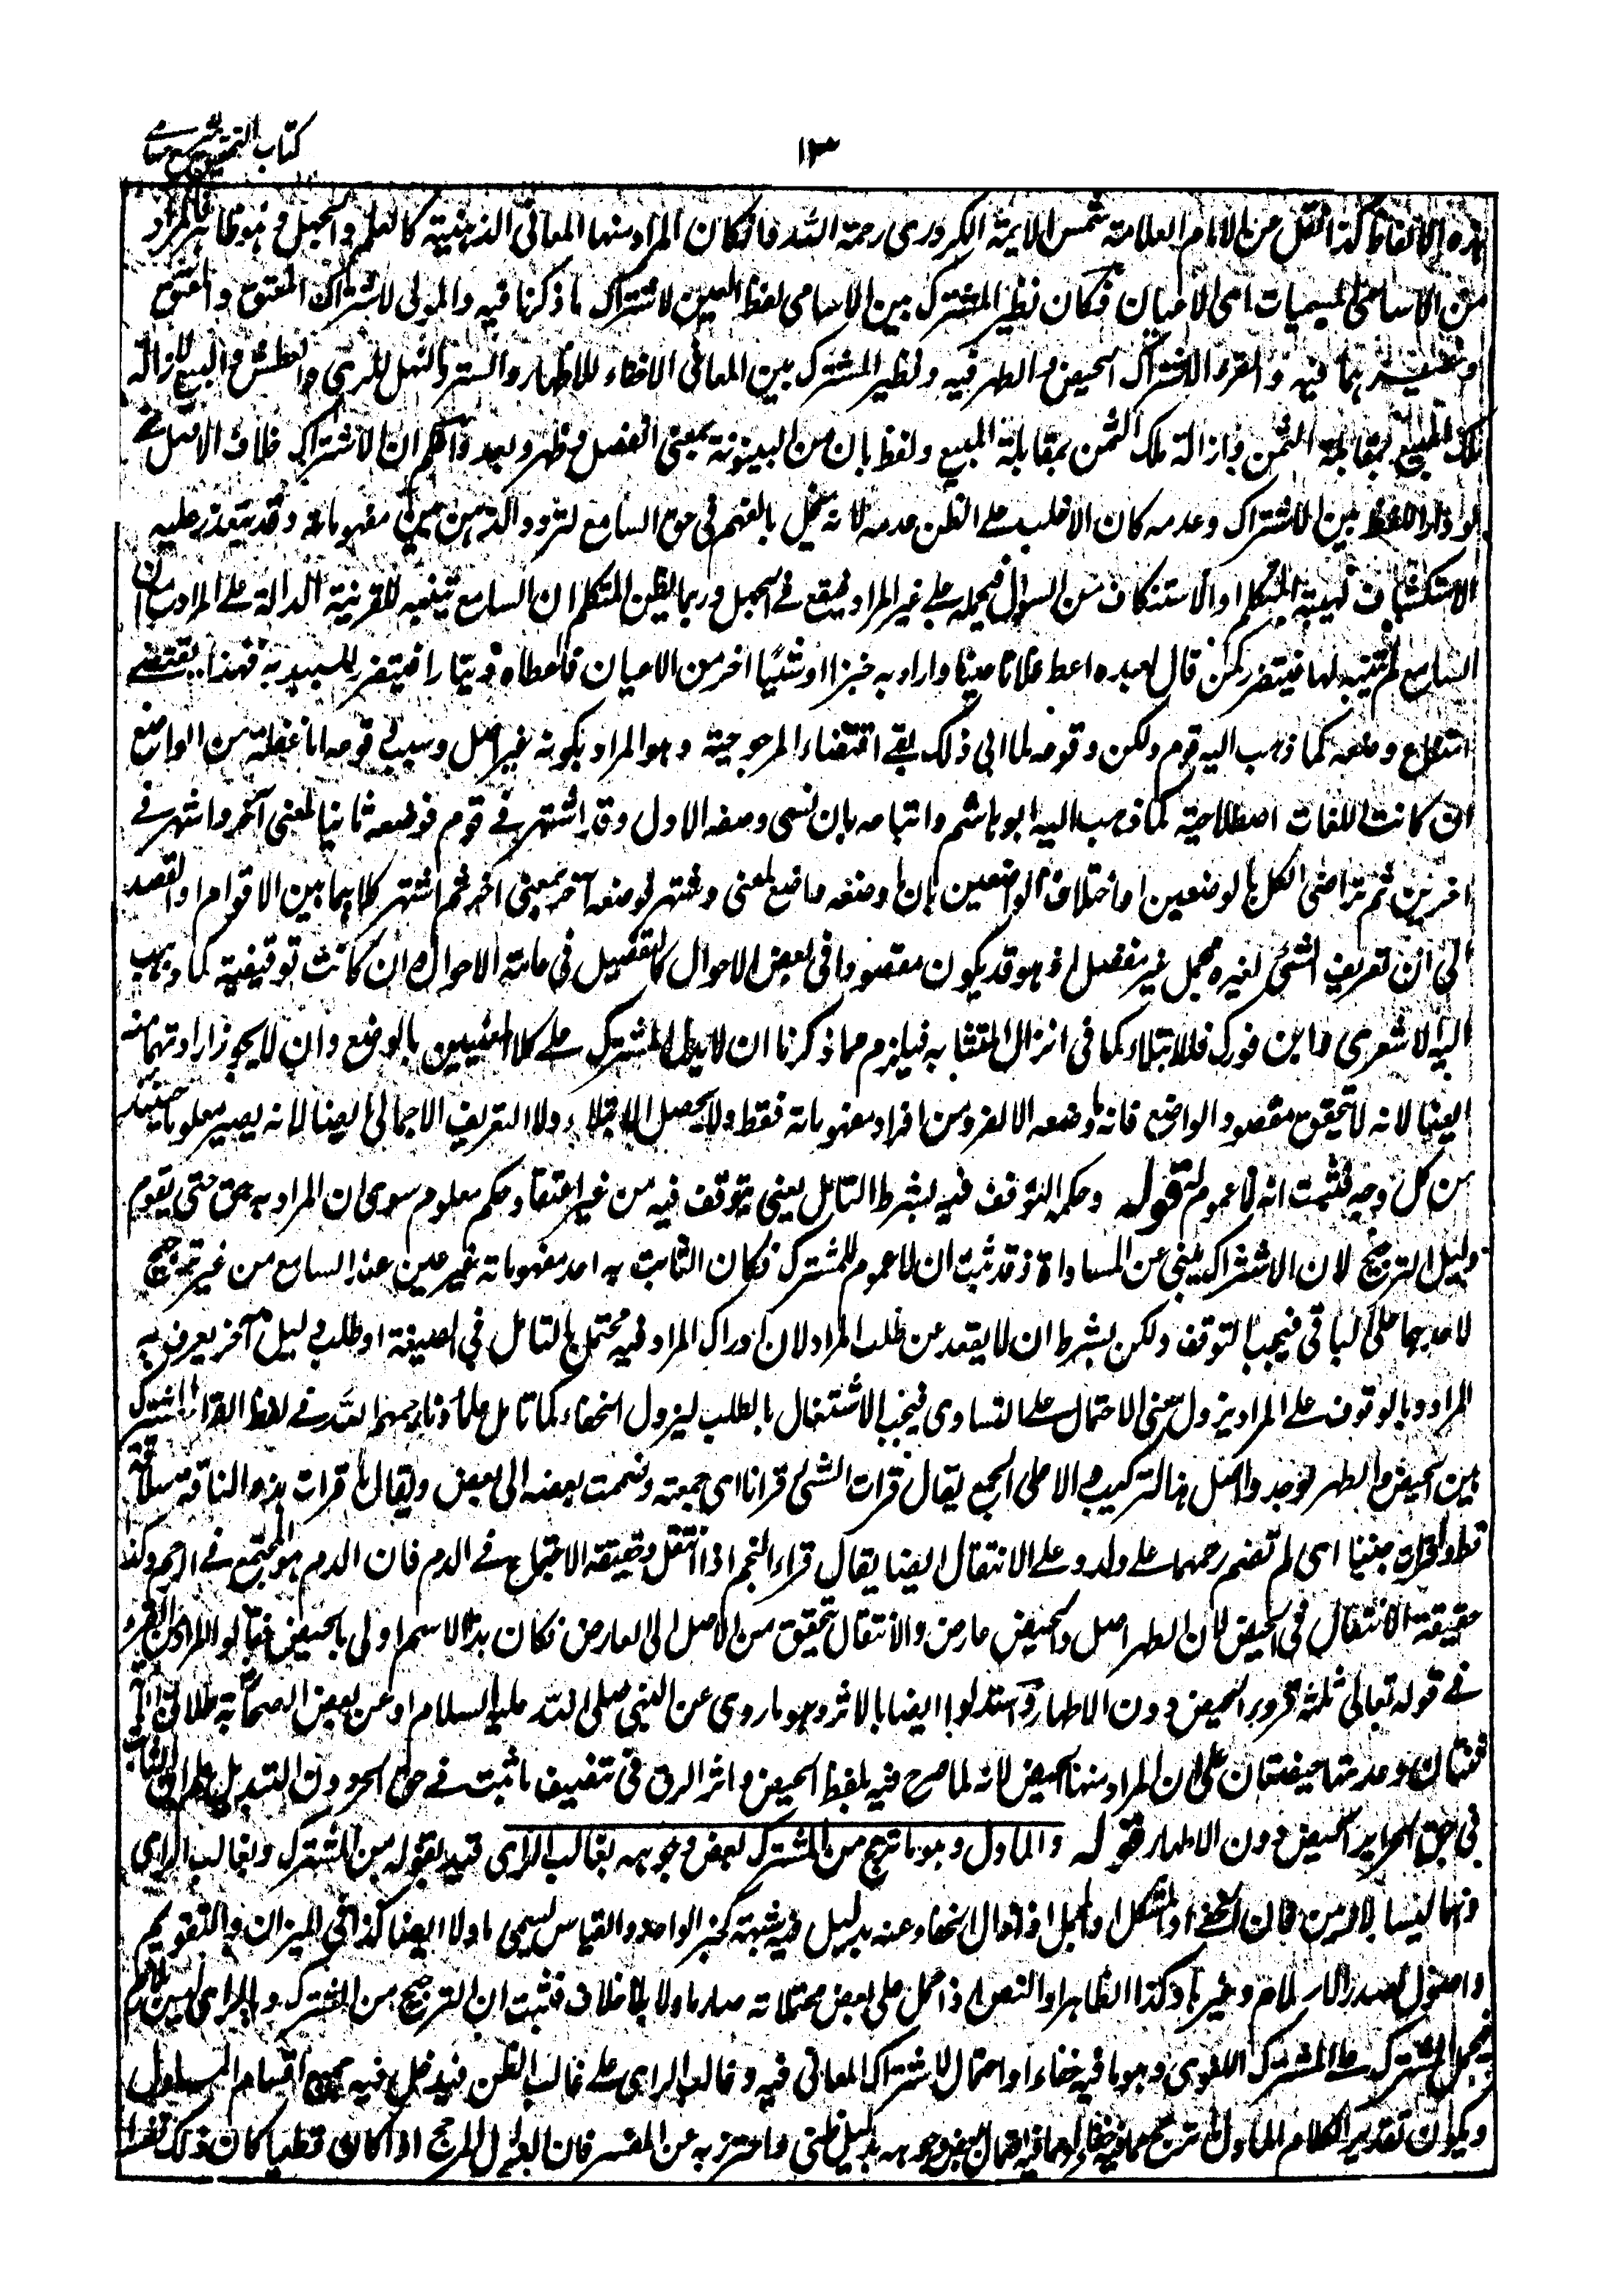 كتاب التحقيق شرح حسامي
١٣
هذه الالفاظ كذا نقل عن الامام العلامة شمس الايمة الكردري رحمة الله فان كان المراد منها المعاني الذهنية كالعلم والجهل وهو ظاهر فالمراد
من الاسامي المسميات اى الاعيان فكان نظير المشترك بين الاسامي لفظ العين لاشتراك ما ذكرنا فيه والمولى لاشتراك المعتق والمعتق
وغيرهما فيه والقرء لاشتراك الحيض والطهر فيه ونظير المشترك بين المعاني الاخفاء للاظهار والستر والنهل للري والعطش والبيع لازالة
ملك المبيع بمقابلة الثمن وازالة ملك الثمن بمقابلة المبيع ولفظ بان من البينونة بمعنى انفصل وظهر وبعد واعلم ان الاشتراك خلاف الاصل حتى
لو دار اللفظ بين الاشتراك وعدمه كان الاغلب على الظن عدمه لانه يخل بالفهم في حق السامع لتردد الذهن بين مفهوماته وقد يتعذر عليه
الاستكشاف لهيبة المتكلم او الاستنكاف من السوال فيحمله على غير المراد فيقع في الجهل وربما يظن المتكلم ان السامع يتنبه للقرينة الدالة على المراد مع ان
السامع لم يتنبه لها فيتضرر كمن قال لعبده اعط فلانا عينا واراد به خبزا او شيئا اخر من الاعيان فاعطاه دينارا فيتضرر السيد به فهذا يقتضي
امتناع وضعه كما ذهب اليه قوم ولكن وقوعه لما ابى ذلك بقي اقتضاء المرجوحية وهو المراد بكونه غير اصل وسبب وقوعه اما غفلة من الواضع
ان كانت اللغات اصطلاحية كما ذهب اليه ابو هاشم واتباعه بان نسي وضعه الاول وقد اشتهر في قوم فوضعه ثانيا لمعنى آخر واشتهر في
اخرين ثم تراضى الكل بالوضعين او اختلاف الواضعين بان وضعه واضع لمعنى واشتهر ووضعه آخر بمعنى اخر ثم اشتهر كلاهما بين الاقوام او القصد
الى ان تعريف الشئ لغيره مجمل غير مفصل اذ هو قد يكون مقصودا في بعض الاحوال كالتفصيل في عامة الاحوال وان كانت توقيفية كما ذهب
اليه الاشعري وابن فورك فللابتلاء كما في انزال المتشابه فيلزم مما ذكرنا ان لا يدل المشترك على كلا المعنيين بالوضع وان لا يجوز ارادتهما منه
ايضا لانه لا تحقق مقصود الواضع فانه ما وضعه الا لفرد من افراد مفهوماته فقط ولا يحصل الابتلاء ولا التعريف الاجمالي ايضا لانه يصير معلوما حينئذ
من كل وجه فثبت انه لا عموم له قوله وحكمه التوقف فيه بشرط التامل يعني يتوقف فيه من غير اعتقاد حكم معلوم سوى ان المراد به حق حتى يقوم
دليل الترجيح لان الاشتراك ينبئ عن المساواة وقد ثبت ان لا عموم للمشترك فكان الثابت به احد مفهوماته غير عين عند السامع من غير ترجيح
لاحدهما على الباقي فيجب التوقف ولكن بشرط ان لا يقعد عن طلب المراد لان ادراك المراد فيه محتمل بالتامل في الصيغة او طلب دليل آخر يعرف به
المراد وبالوقوف على المراد يزول معنى الاحتمال على التساوى فيجب الاشتغال بالطلب ليزول الخفاء كما تامل علماؤنا رحمهم الله في لفظ القرء المشترك
بين الحيض والطهر فوجدوا اصل هذا التركيب دالا على الجمع يقال قرات الشئ قرانا اى جمعته وضممت بعضه الى بعض ويقال ما قرات هذه الناقة سلا
قط وما قرات جنينا اى لم تضم رحمها على ولد وعلى الانتقال ايضا يقال قرء النجم اذا انتقل وحقيقة الاجتماع في الدم فان الدم هو المجتمع في الرحم وكذا
حقيقة الانتقال في الحيض لان الطهر اصل والحيض عارض والانتقال تحقق من الاصل الى العارض فكان هذا الاسم اولى بالحيض فقالوا المراد من القرو
في قوله تعالى ثلثة قروء الحيض دون الاطهار واستدلوا ايضا بالاثر وهو ما روى عن النبي صلى الله عليه السلام او عن بعض الصحابة طلاق الامة
ثنتان وعدتها حيضتان على ان المراد منها الحيض لانه لما صرح فيه بلفظ الحيض واثر الرق في تنصيف ما ثبت في حق الحر دون التبديل علم ان الثابت
في حق الحراير الحيض دون الاطهار قوله والماول وهو ما ترجح من المشترك بعض وجوهه بغالب الراى قيد بقوله من المشترك وبغالب الراى
وهما ليسا بلازمين فان الخفى او المشكل او المجمل اذا زال الخفاء عنه بدليل فيه شبهة كخبر الواحد والقياس يسمى ماولا ايضا كذا في الميزان والتقويم
واصول صدر الاسلام وغيرها وكذا الظاهر والنص اذا حمل على بعض محتملاته صار ماولا بلا خلاف فثبت ان الترجيح من المشترك وبالراى ليس بلازم
فيحمل المشترك على المشترك اللغوى وهو ما فيه خفاء او احتمال لاشتراك المعاني فيه وغالب الراى على غالب الظن فيدخل فيه جميع اقسام الماول
ويكون تقدير الكلام الماول ما ترجح مما فيه خفاء او مما فيه احتمال بعض وجوهه بدليل ظني واحترز به عن المفسر فان الدليل المرجح اذا كان قطعيا كان ذلك تفسيرا